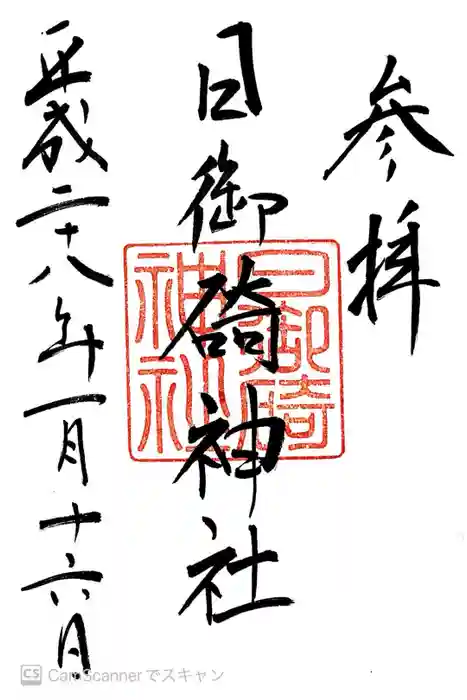 参拝
日御碕神社
平成二十八年一月十六日
日御碕
神社
CS CamScannerでスキャン